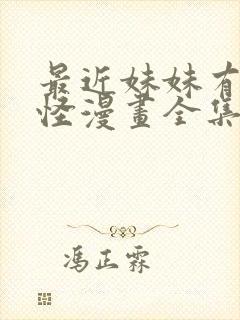 最近妹妹有
怪漫畫全集
馮正霖